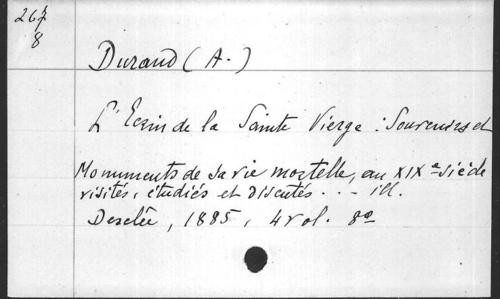 267
8
Durand (A.)
L'Ecrin de la Sainte Vierge : Souvenirs et
Monuments de sa vie mortelle, au XIXe siècle
visités, étudiés et discutés . . . ill.
Desclée, 1885, 4 vol. 8º